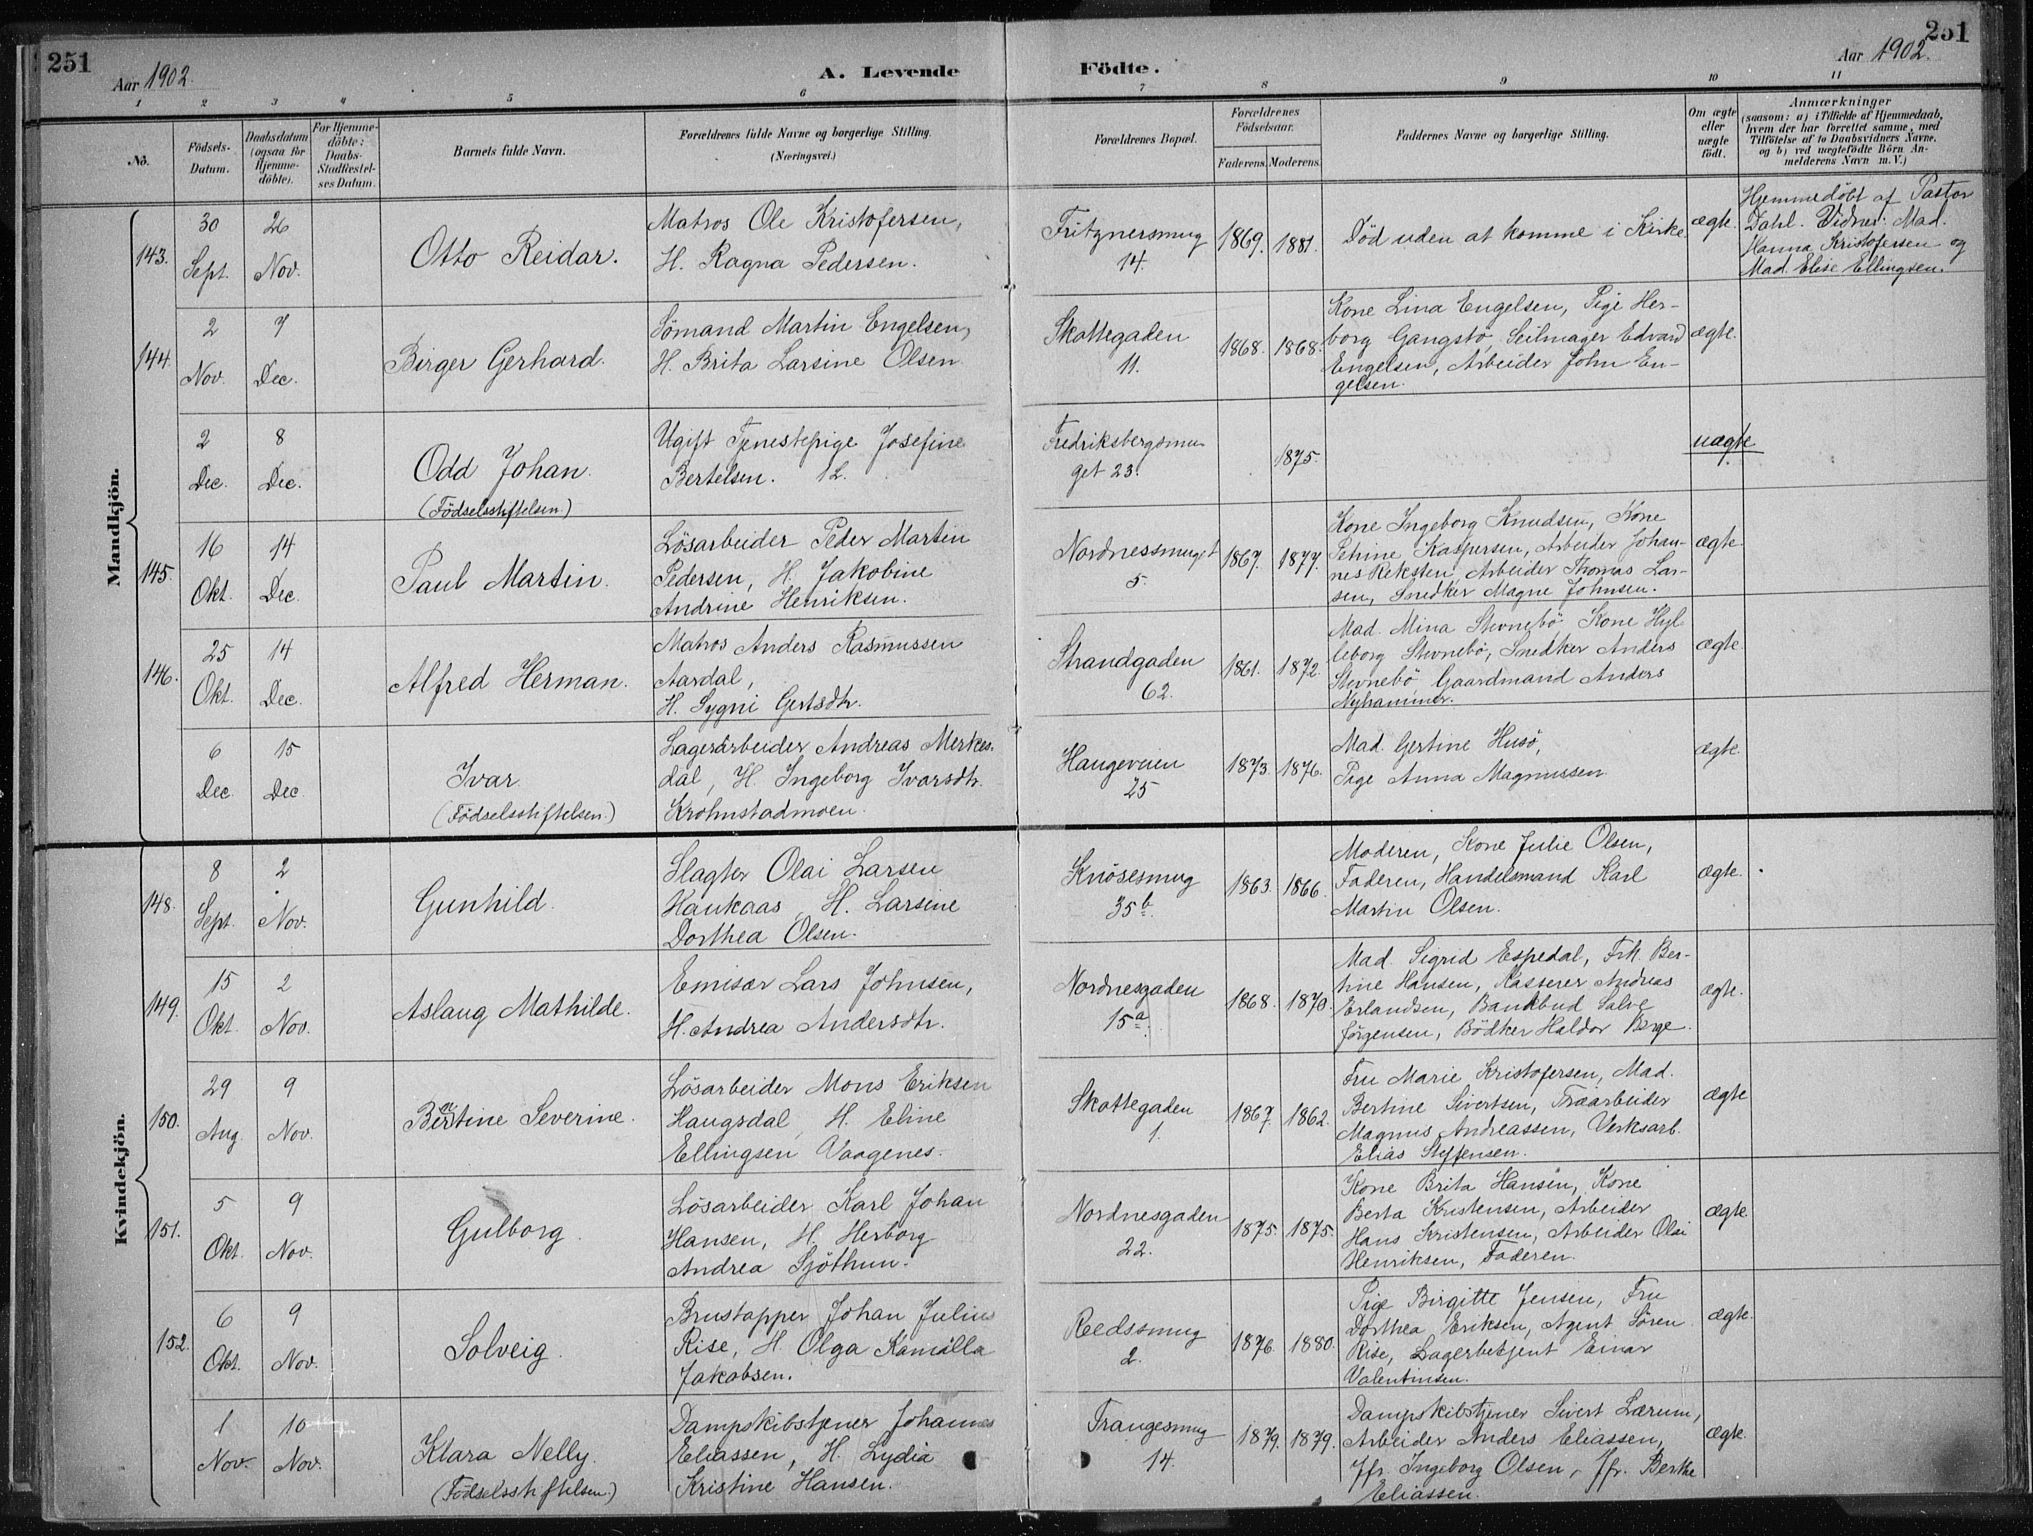 251
Aar 1902.
A. Levende
Födte.
251
Aar 1902.
1 2 3 4 5 6 7 8 9 10 11
No.
Födsels-
Datum.
Daabsdatum
(ogsaa for
Hjemme-
döbte).
For Hjemme-
döbte:
Daabs-
Stadfæstel-
ses Datum.
Barnets fulde Navn.
Forældrenes fulde Navne og borgerlige Stilling.
(Næringsvei.)
Forældrenes Bopæl.
Forældrenes
Födselsaar.
Faderens. Moderens.
Faddernes Navne og borgerlige Stilling.
Om ægte
eller
uægte
födt.
Anmærkninger
(saasom: a) i Tilfælde af Hjemmedaab,
hvem der har forrettet samme, med
Tilföielse af to Daabsvidners Navne,
og b) ved uægtefödte Börn An-
melderens Navn m. V.)
Mandkjön.
143.
30
Sept.
26
Nov.
Otto Reidar.
Matros Ole Kristofersen,
H. Ragna Pedersen.
Fritznersmug
14.
1869. 1881.
Död uden at komme i Kirke
ægte.
Hjemmedöbt af Pastor
Dahl. Vidner: Mad.
Hanna Kristofersen og
Mad. Elise Ellingsen.
144.
2
Nov.
7
Dec.
Birger Gerhard.
Sömand Martin Engelsen,
H. Brita Larsine Olsen
Skottegaden
11.
1868. 1868.
Kone Lina Engelsen, Pige Her-
borg Gangstö, Seilmager Edvard
Engelsen, Arbeider John En-
gelsen.
ægte.
2
Dec.
8
Dec.
Odd Johan.
(Födselsstiftelsen)
Ugift Tjenestepige Josefine
Bertelsen. 12.
Fredriksbergsmu-
get 23.
1875.
uægte
145.
16
Okt.
14
Dec.
Paul Martin.
Lösarbeider Peder Martin
Pedersen, H. Jakobine
Andrine Henriksen.
Nordnessmuget
5.
1867. 1877.
Kone Ingeborg Knudsen, Kone
Petrine Kaspersen, Arbeider Johan-
nes Reksten, Arbeider Thomas Lar-
sen, Snedker Magne Johnsen.
ægte.
146.
25
Okt.
14
Dec.
Alfred Herman.
Matros Anders Rasmussen
Aardal,
H. Sygni Gertsdtr.
Strandgaden
62.
1861. 1872.
Mad. Mina Stevnebö. Kone Hyl-
leborg Stevnebö, Snedker Anders
Stevnebö Gaardmand Anders
Nyhammer.
ægte.
6
Dec.
15
Dec.
Ivar.
(Födselsstiftelsen.)
Lagerarbeider Andreas Merkes-
dal, H. Ingeborg Ivarsdtr.
Krohnstadmoen.
Haugeveien
25
1873. 1876.
Mad. Gertine Husö,
Pige Anna Magnussen
ægte.
Kvindekjön.
148.
8
Sept.
2
Nov.
Gunhild.
Slagter Olai Larsen
Haukaas, H. Larsine
Dorthea Olsen.
Knösesmug
35b.
1863. 1866.
Moderen, Kone Julie Olsen,
Faderen, Handelsmand Karl
Martin Olsen.
ægte.
149.
15
Okt.
2
Nov.
Aslaug Mathilde.
Emisær Lars Johnsen,
H. Andrea Andersdtr.
Nordnesgaden
15a.
1868. 1870.
Mad. Sigrid Espedal, Frk. Ber-
tine Hansen, Kasserer Andreas
Erlandsen, Bankbud Salve
Jörgensen, Bödker Haldor Berge.
ægte.
150.
29
Aug.
9
Nov.
Berntine Severine.
Lösarbeider Mons Eriksen
Haugsdal, H. Eline
Ellingsen Vaagenes.
Skottegaden
1.
1867. 1862.
Fru Marie Kristofersen, Mad.
Bertine Sivertsen, Træarbeider
Magnus Andreassen, Verksarb.
Elias Steffensen.
ægte
151.
5
Okt.
9
Nov.
Gulborg.
Lösarbeider Karl Johan
Hansen, H. Herborg
Andrea Sjöthun.
Nordnesgaden
22.
1875. 1875.
Kone Brita Hansen, Kone
Berta Kristensen, Arbeider
Hans Kristensen, Arbeider Olai
Henriksen, Faderen.
ægte.
152.
6
Okt.
9
Nov.
Solveig.
Brustapper Johan Julius
Rise, H. Olga Kamilla
Jakobsen.
Reedssmug
2.
1876. 1880.
Pige Birgitte Jensen, Fru
Dorthea Eriksen, Agent Sören
Rise, Lagerbetjent Einar
Valentinsen.
ægte.
1
Nov.
10
Nov.
Klara Nelly.
(Födselsstiftelsen.)
Dampskibstjener Johannes
Eliassen, H. Lydia
Kristine Hansen.
Trangesmug
14.
1879. 1879.
Dampskibstjener Sivert Lærum,
Arbeider Anders Eliassen,
Jfr. Ingeborg Olsen, Jfr. Berthe
Eliassen.
ægte.